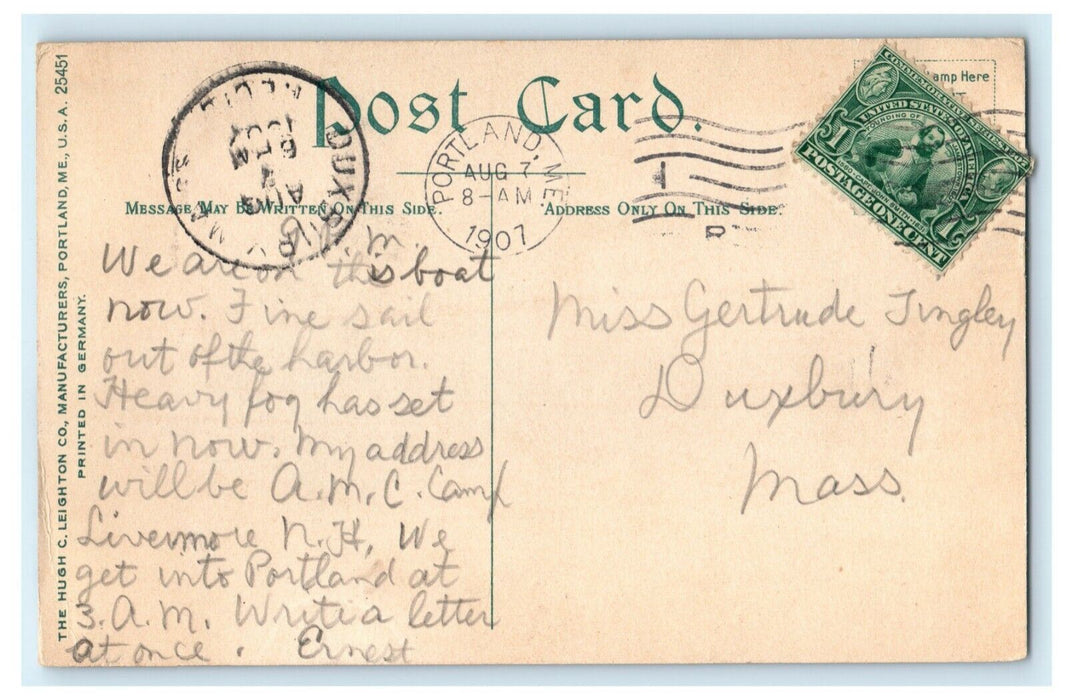 Post Card.
THE HUGH C. LEIGHTON CO., MANUFACTURERS, PORTLAND, ME., U.S.A. 25451
PRINTED IN GERMANY.
MESSAGE MAY BE WRITTEN ON THIS SIDE.
ADDRESS ONLY ON THIS SIDE.
amp Here
DUXBURY
MASS
REC'D
1907
PORTLAND, ME.
AUG 7
8-AM
1907
COMMEMORATIVE SERIES 1907
UNITED STATES OF AMERICA
FOUNDING OF
CAPT. JOHN SMITH
$1
POSTAGE ONE CENT
1
P.M.
We are on this boat
now. Fine sail
out of the harbor.
Heavy fog has set
in now. My address
will be A.M.C. Camp
Livermore N.H, We
get into Portland at
3. A.M. Write a letter
at once. Ernest
Miss Gertrude Tingley
Duxbury
Mass.